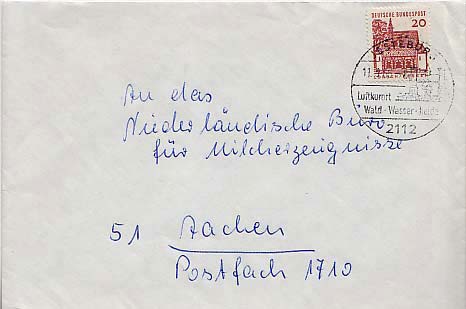 DEUTSCHE BUNDESPOST
20
JESTEBURG
Luftkurort
Wald-Wasser-Heide
2112
An das
Niederländische Büro
für Milcherzeugnisse
51 Aachen
Postfach 1710